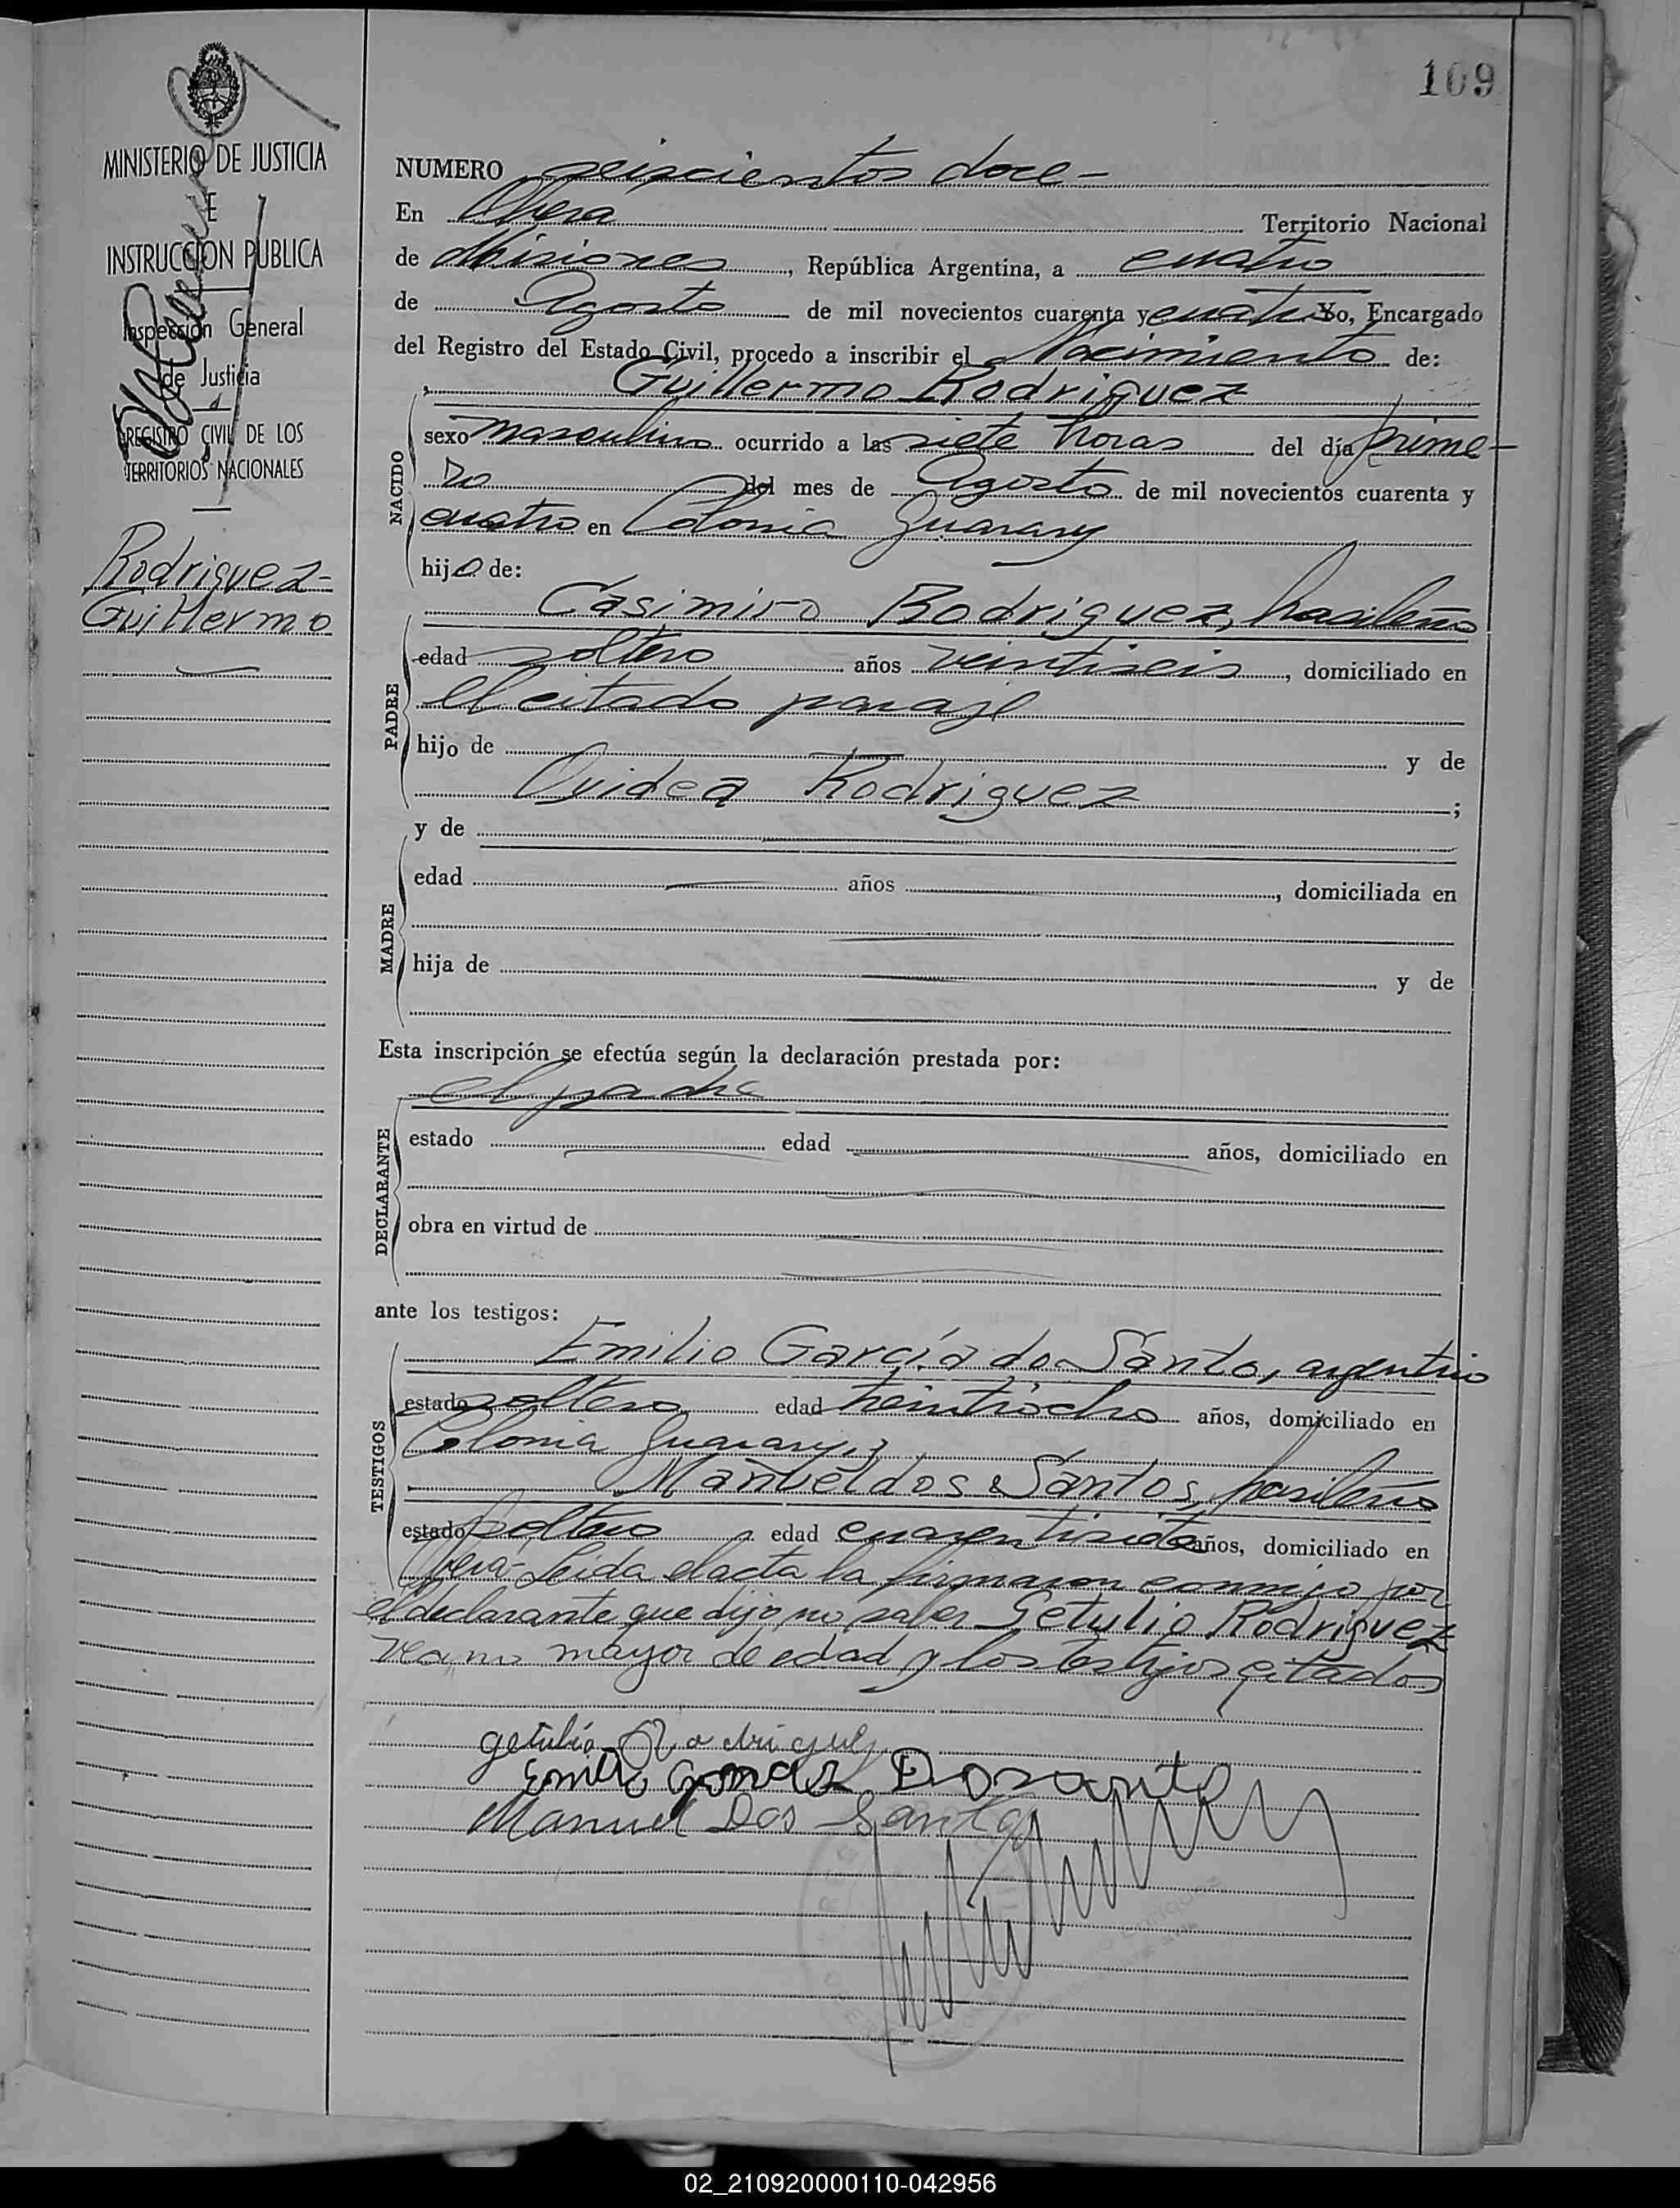 109
MINISTERIO DE JUSTICIA
E
INSTRUCCION PUBLICA
Inspección General
de Justicia
REGISTRO CIVIL DE LOS
TERRITORIOS NACIONALES
Rodriguez-
Guillermo
NUMERO seiscientos doce-
En Obera Territorio Nacional
de Misiones, República Argentina, a cuatro
de Agosto de mil novecientos cuarenta y cuatro Yo, Encargado
del Registro del Estado Civil, procedo a inscribir el Nacimiento de:
Guillermo Rodriguez
NACIDO
sexo masculino ocurrido a las siete horas del día prime-
ro del mes de Agosto de mil novecientos cuarenta y
cuatro en Colonia Guarany
hijo de:
Casimiro Rodriguez, brasileño
PADRE
edad soltero años veintiseis, domiciliado en
el citado paraje
hijo de y de
Ovidea Rodriguez ;
y de
MADRE
edad años , domiciliada en
hija de y de
Esta inscripción se efectúa según la declaración prestada por:
el padre
DECLARANTE
estado edad años, domiciliado en
obra en virtud de
ante los testigos:
Emilio García do Santo, argentino
TESTIGOS
estado soltero edad veintiocho años, domiciliado en
Colonia Guarany y
Manuel dos Santos, brasileño
estado soltero edad cuarentisiete años, domiciliado en
Obera- Leida el acta la firmaron conmigo por
el declarante que dijo no saber Getulio Rodriguez
vecino mayor de edad y los testigos citados
getulio Rodriguez
Manuel Dos Santos
02_210920000110-042956